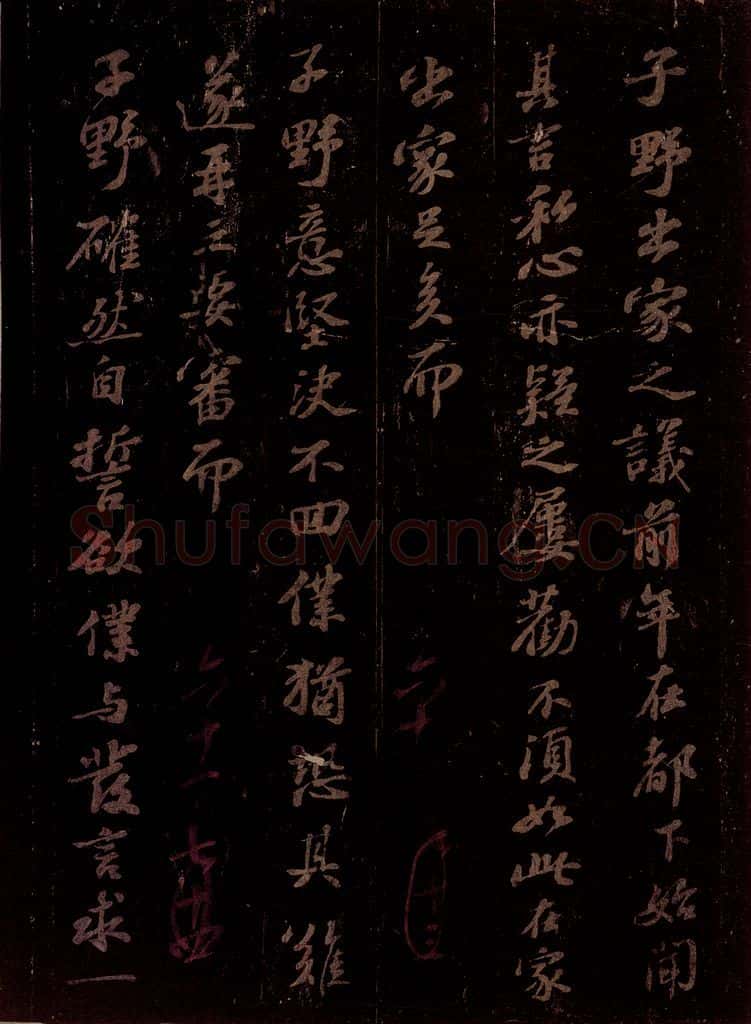 子野出家之議前年在都下始聞
其言私心亦疑之屢勸不須如此在家
出家足矣而
子野意堅決不回僕猶恐其難
遂再之要審而
子野確然自誓欲僕与發言求一
Shufawang.CN